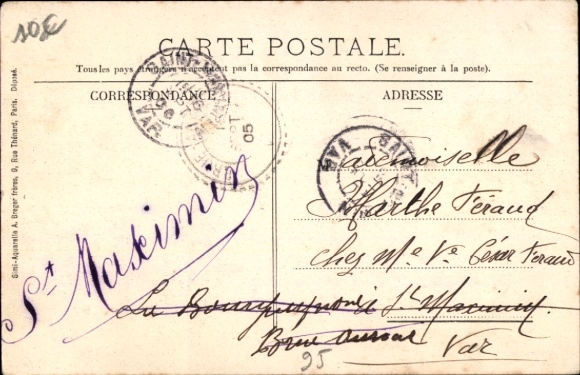 10€
CARTE POSTALE.
Tous les pays étrangers n'acceptent pas la correspondance au recto. (Se renseigner à la poste).
CORRESPONDANCE
ADRESSE
Simi-Aquarelle A. Breger frères, 9, Rue Thénard, Paris. Déposé.
SAINT-
VAR
05
SAINT-
VAR
St Maximin
Mademoiselle
Marthe Féraud
chez Me Ve César Feraud
La à St Maximin
Var
95